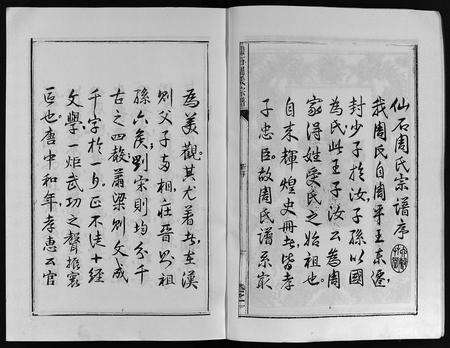 仙石周氏宗譜序
我周氏自周平王東遷,
封少子於汝子孫以國
為氏此王子汝云為周
家得姓受氏之始祖也。
自來輝煌史冊者,皆孝
子忠臣。故周氏譜系最
為美觀其尤著者,在漢
則父子為相,在晉則祖
孫六矣;劉宋則均分千
古之四教蕭梁則文成
千字於一夕。正不徒十經
文學一炬武功之聲振寰
區也唐中和年孝惠公官